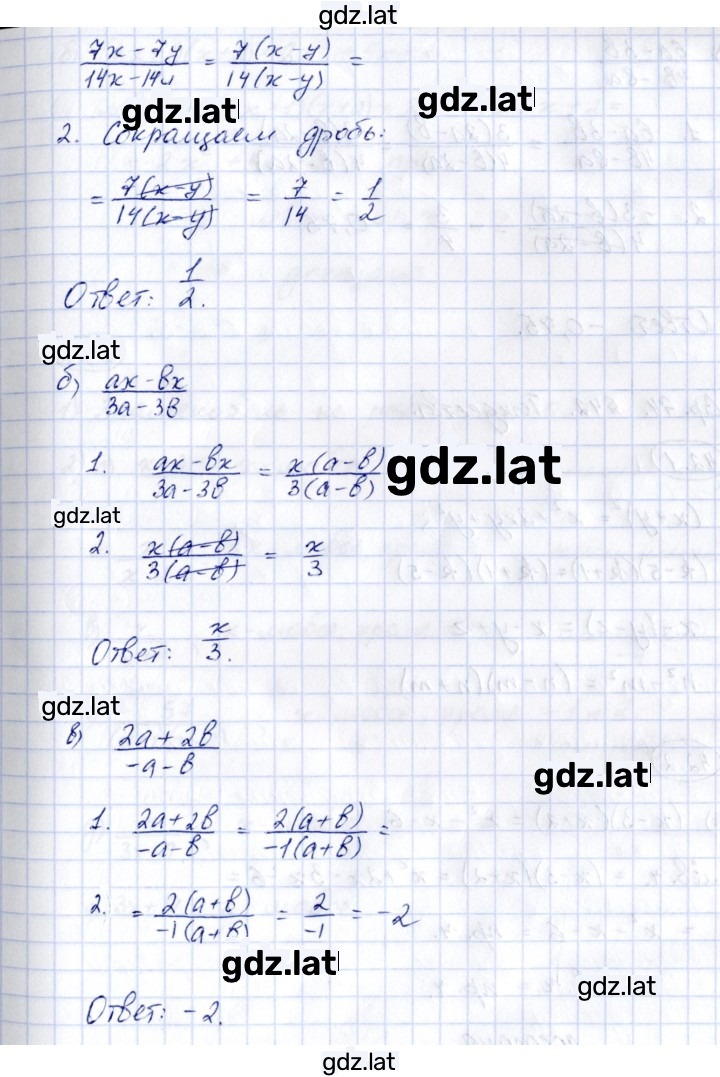 gdz.lat
(7x - 7y)/(14x - 14y) = 7(x - y)/14(x - y) =
gdz.lat gdz.lat
2. Сокращаем дробь:
= 7(x - y)/14(x - y) = 7/14 = 1/2
Ответ: 1/2.
gdz.lat
б) (ax - bx)/(3a - 3b)
1. (ax - bx)/(3a - 3b) = x(a - b)/3(a - b) gdz.lat
gdz.lat
2. x(a - b)/3(a - b) = x/3
Ответ: x/3.
gdz.lat
в) (2a + 2b)/(-a - b)
gdz.lat
1. (2a + 2b)/(-a - b) = 2(a + b)/-1(a + b) =
2. = 2(a + b)/-1(a + b) = 2/-1 = -2
gdz.lat
gdz.lat
Ответ: -2.
gdz.lat